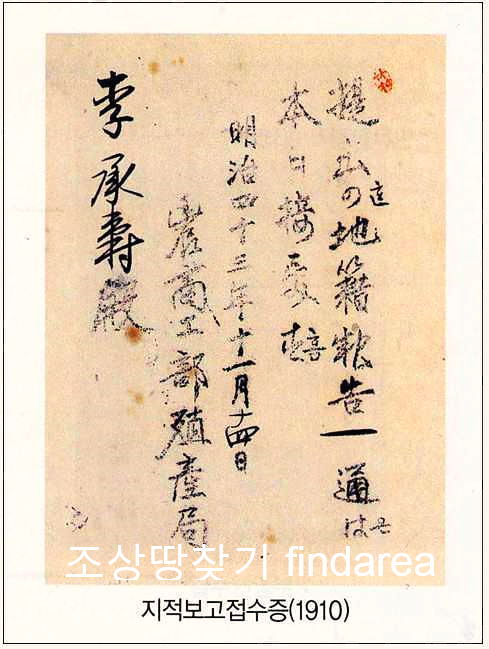 提出の地籍報告一通は
本日接受
明治四十三年十一月十四日
農商工部殖産局
李承壽殿
조상땅찾기 findarea
지적보고접수증(1910)